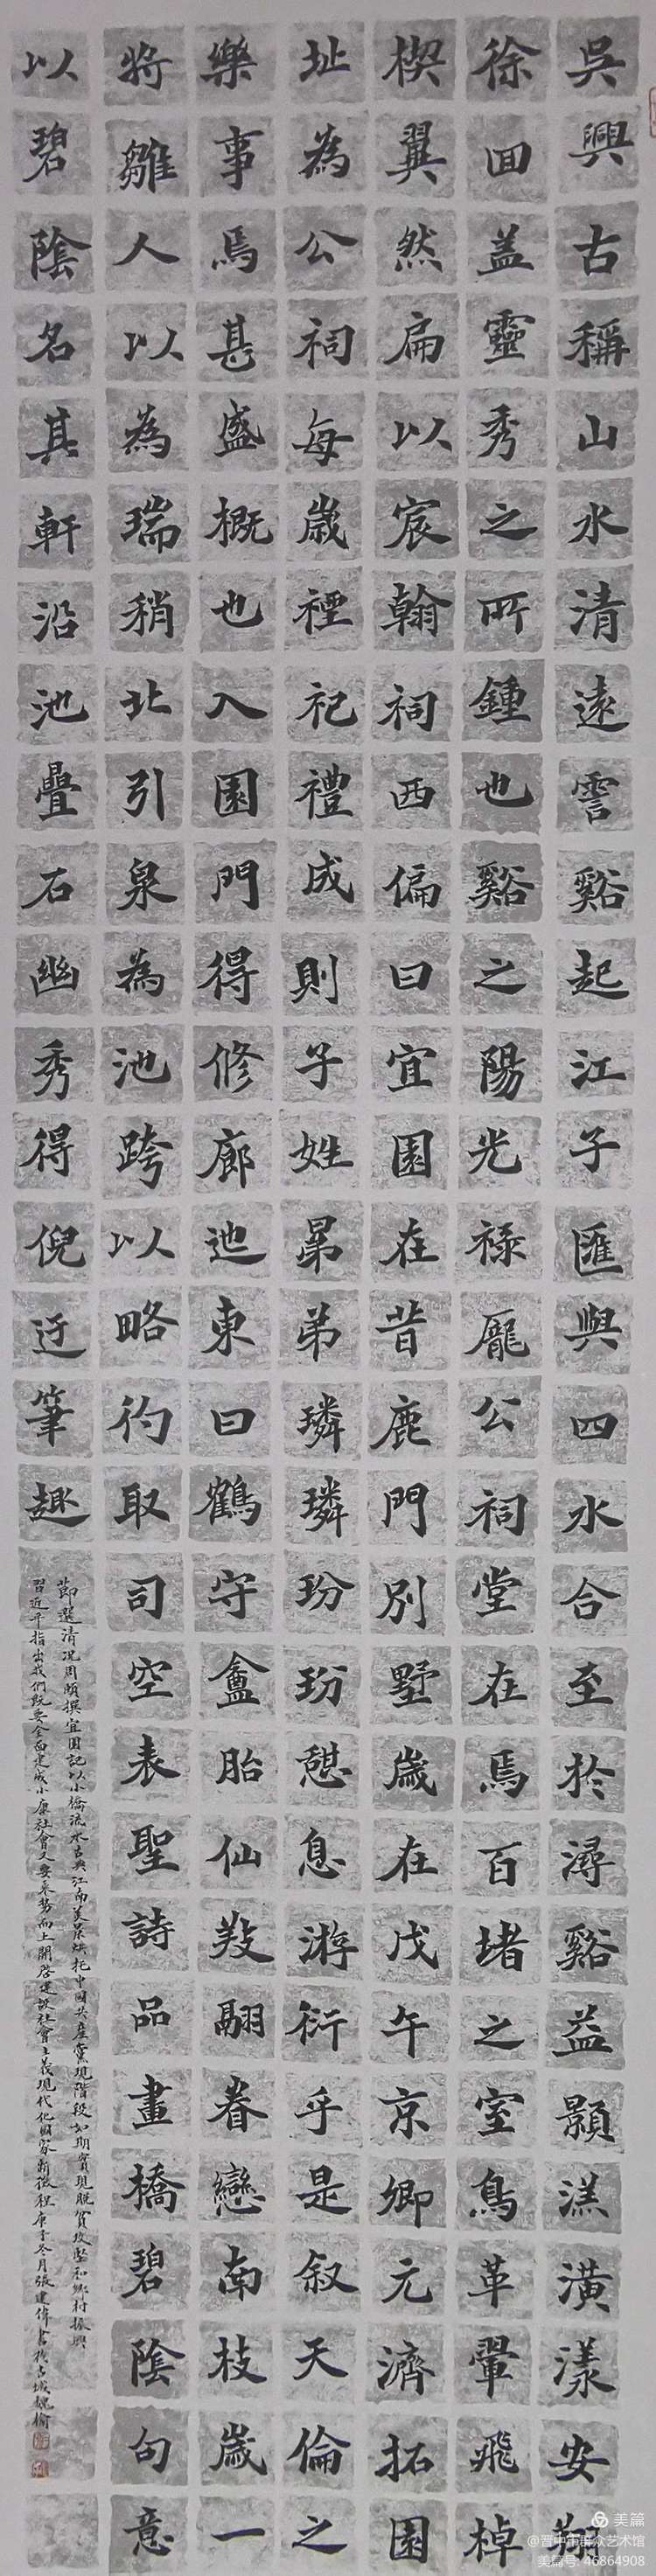 吳興古稱山水清遠霅谿起江子匯與四水合至於潯谿益顥溔潢漾安翔
徐回盖靈秀之所鍾也谿之陽光祿龐公祠堂在焉百堵之室鳥革翬飛棹
楔翼然扁以宸翰祠西偏曰宜園在昔鹿門別墅歲在戊午京卿元濟拓園
址為公祠每歲禋祀禮成則子姓晜弟璘璘玢玢憇息游衍乎是叙天倫之
樂事焉甚盛概也入園門得修廊迆東曰鶴守盦胎仙㪇翮眷戀南枝歲一
將雛人以為瑞稍北引泉為池跨以略彴取司空表聖詩品畫橋碧陰句意
以碧陰名其軒沿池疊石幽秀得倪迂筆趣
節選清況周頤撰宜園記以小橋流水古典江南美景烘托中國共產黨現階段如期實現脫貧攻堅和鄉村振興
習近平指出我們既要全面建成小康社會又要乘勢而上開啓建設社會主義現代化國家新徵程庚子冬月張建偉書於古城魏榆
美篇
@晋中市群众艺术馆
美篇号:46864908